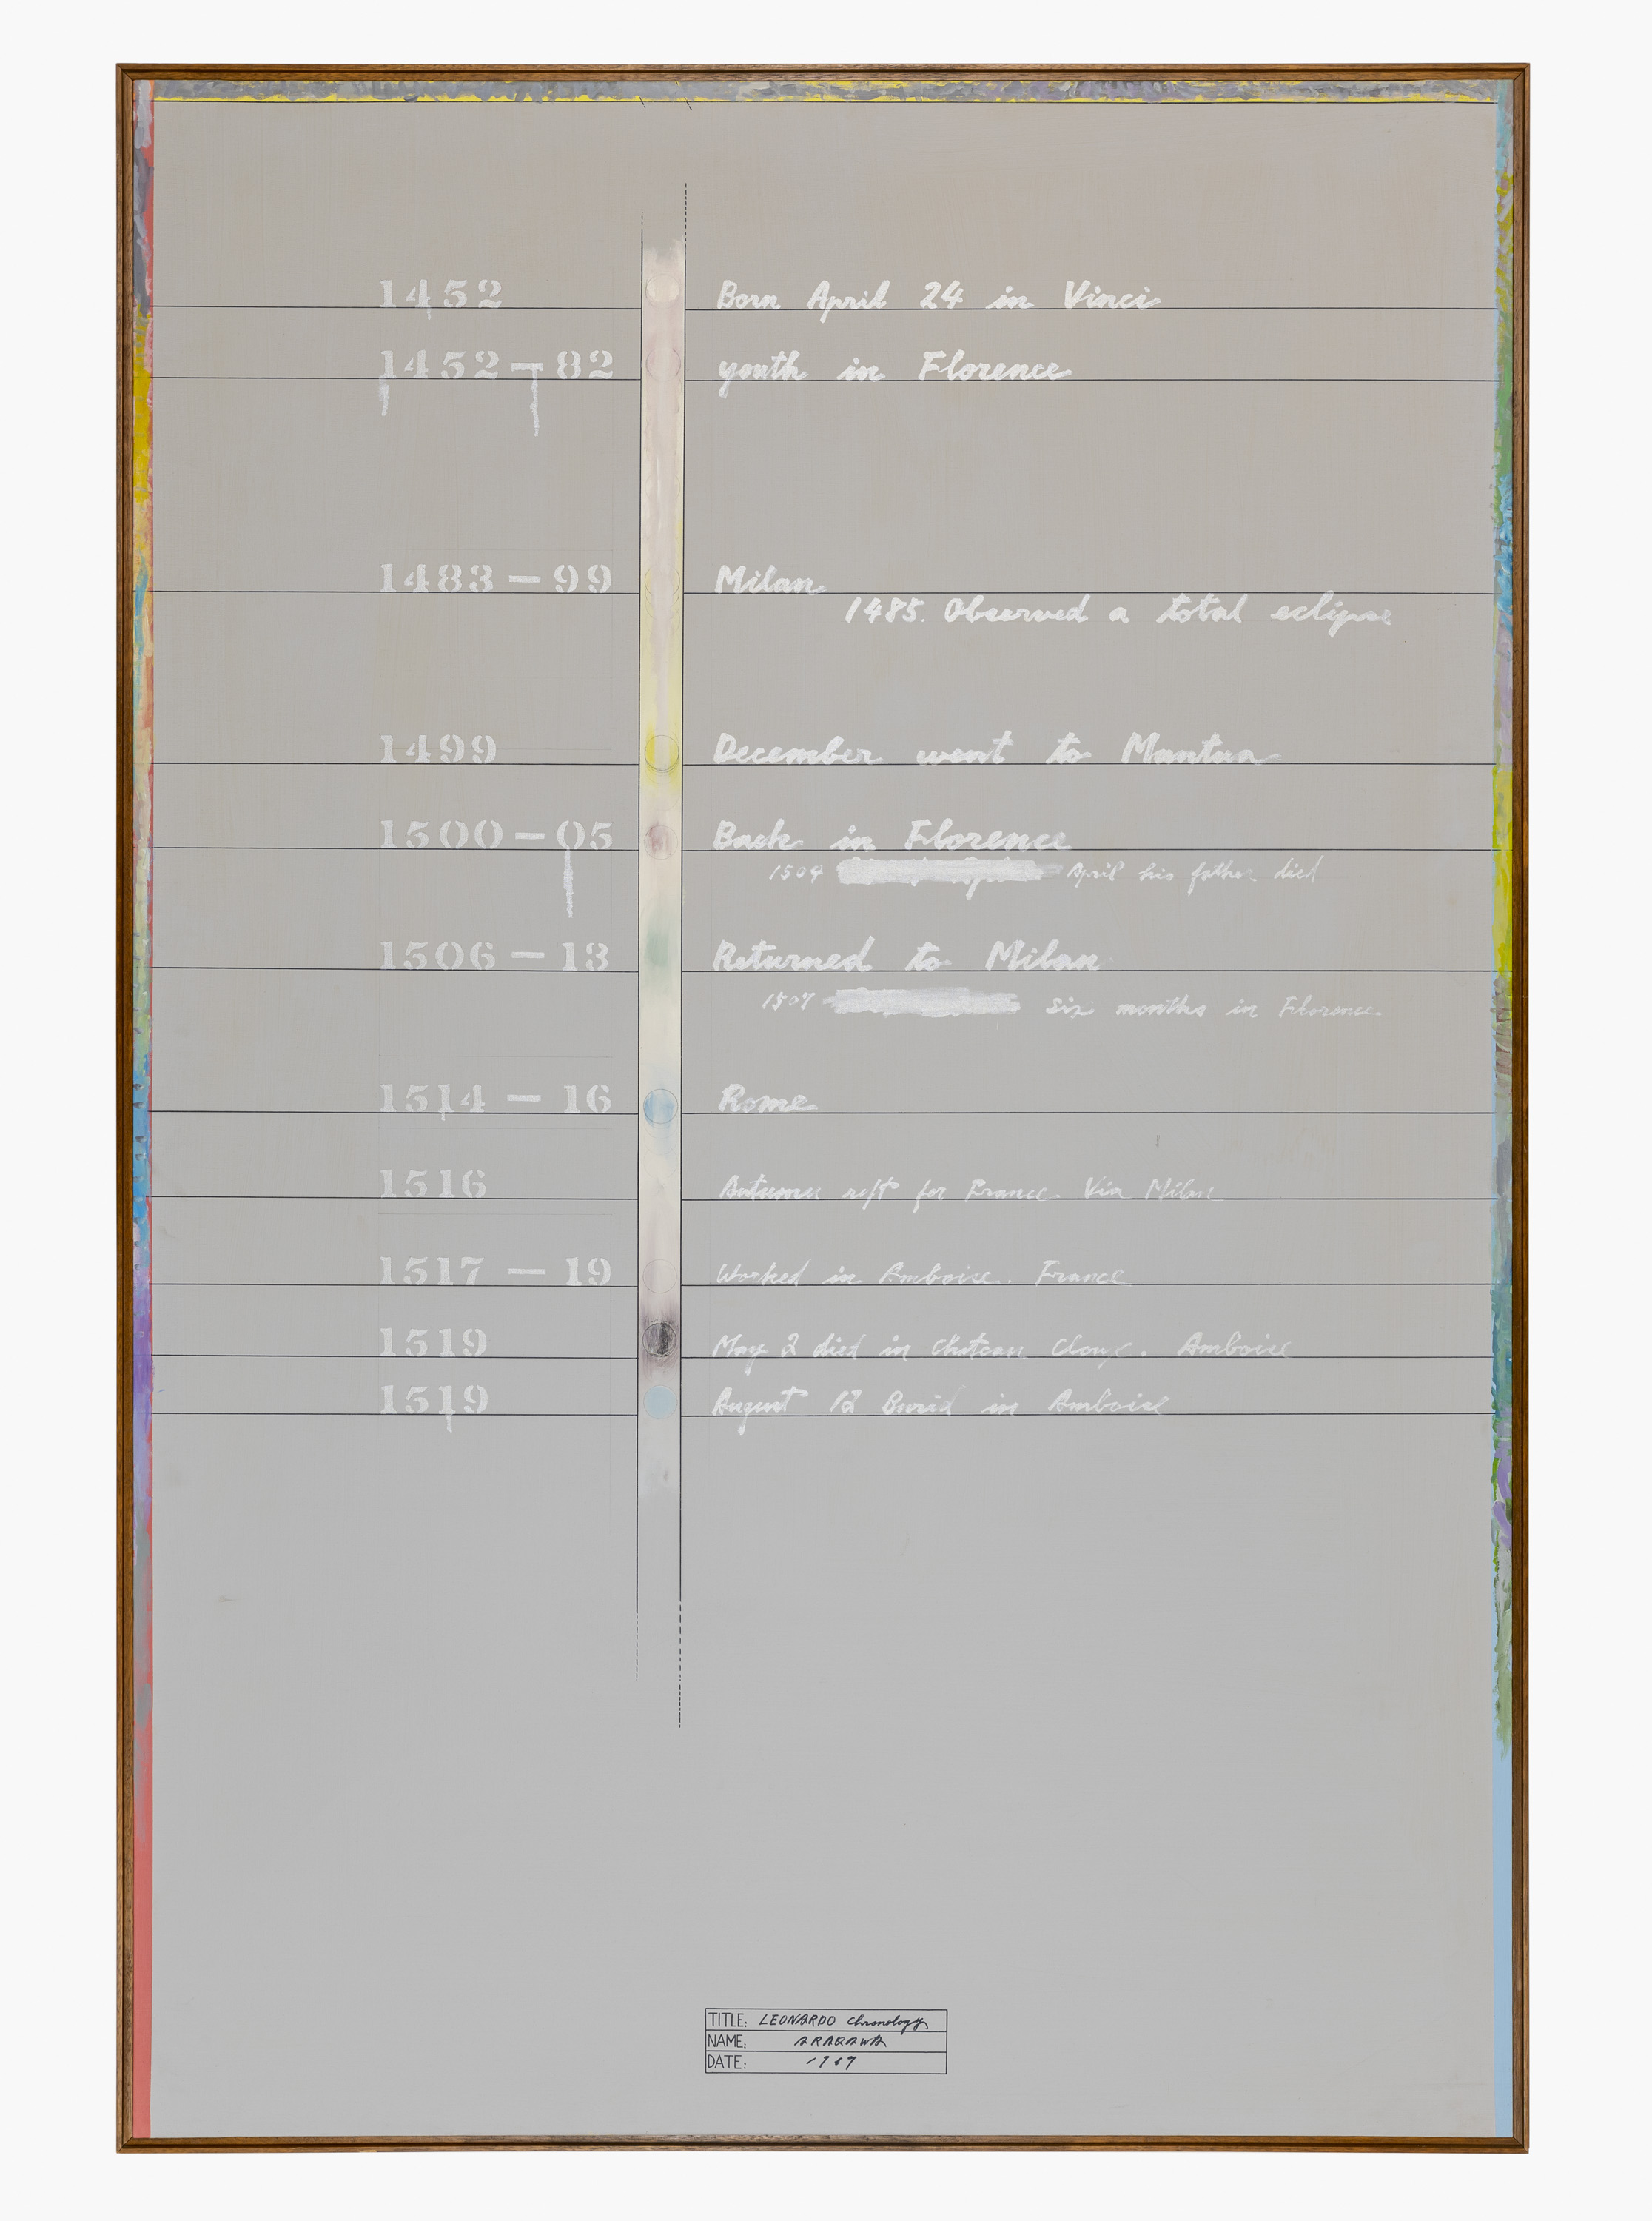 1452 Born April 24 in Vinci
1452–82 youth in Florence
1483–99 Milan
1485. Observed a total eclipse
1499 December went to Mantua
1500–05 Back in Florence
1504 April his father died
1506–13 Returned to Milan
1507 six months in Florence
1514–16 Rome
1516 Autumn for France. Via Milan
1517–19 Worked in Amboise. France
1519 May 2 died in chateau Cloux. Amboise
1519 August 12 in Amboise
TITLE: LEONARDO chronology
NAME: ARAKAWA
DATE: